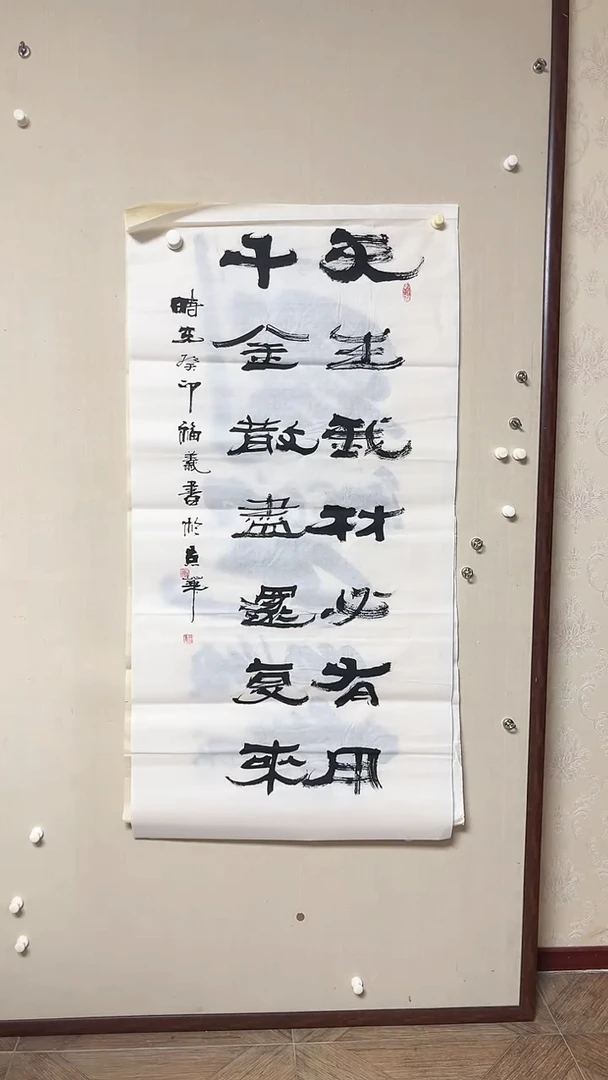 天生我材必有用
千金散盡還复來
時在癸卯福義書於京華